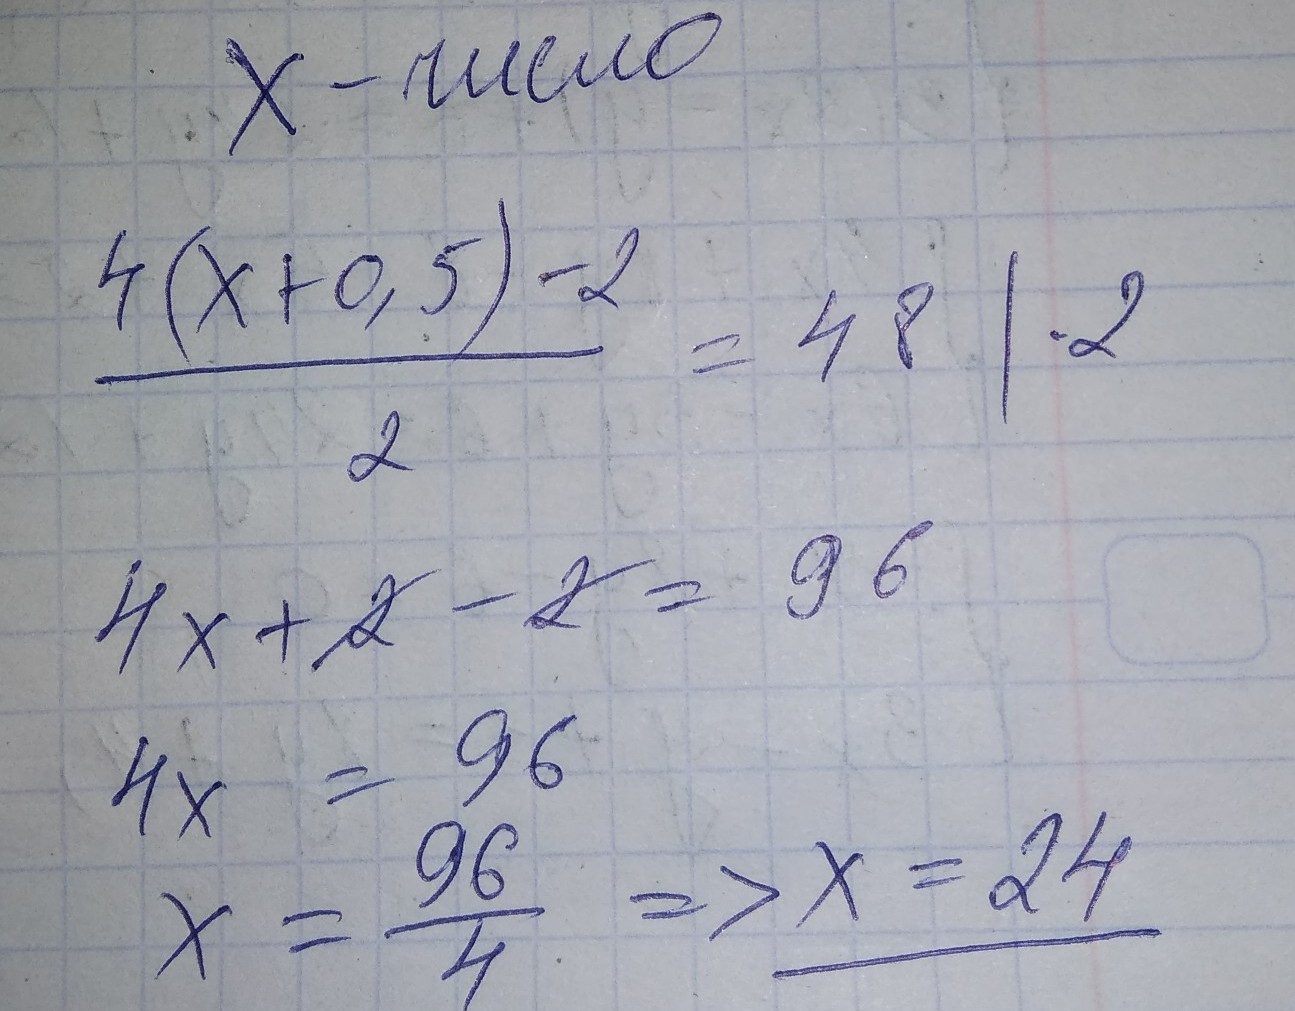 x - число
4(x+0,5)-2
= 48 | ·2
2
4x + 2 - 2 = 96
4x = 96
x = 96/4 => x = 24